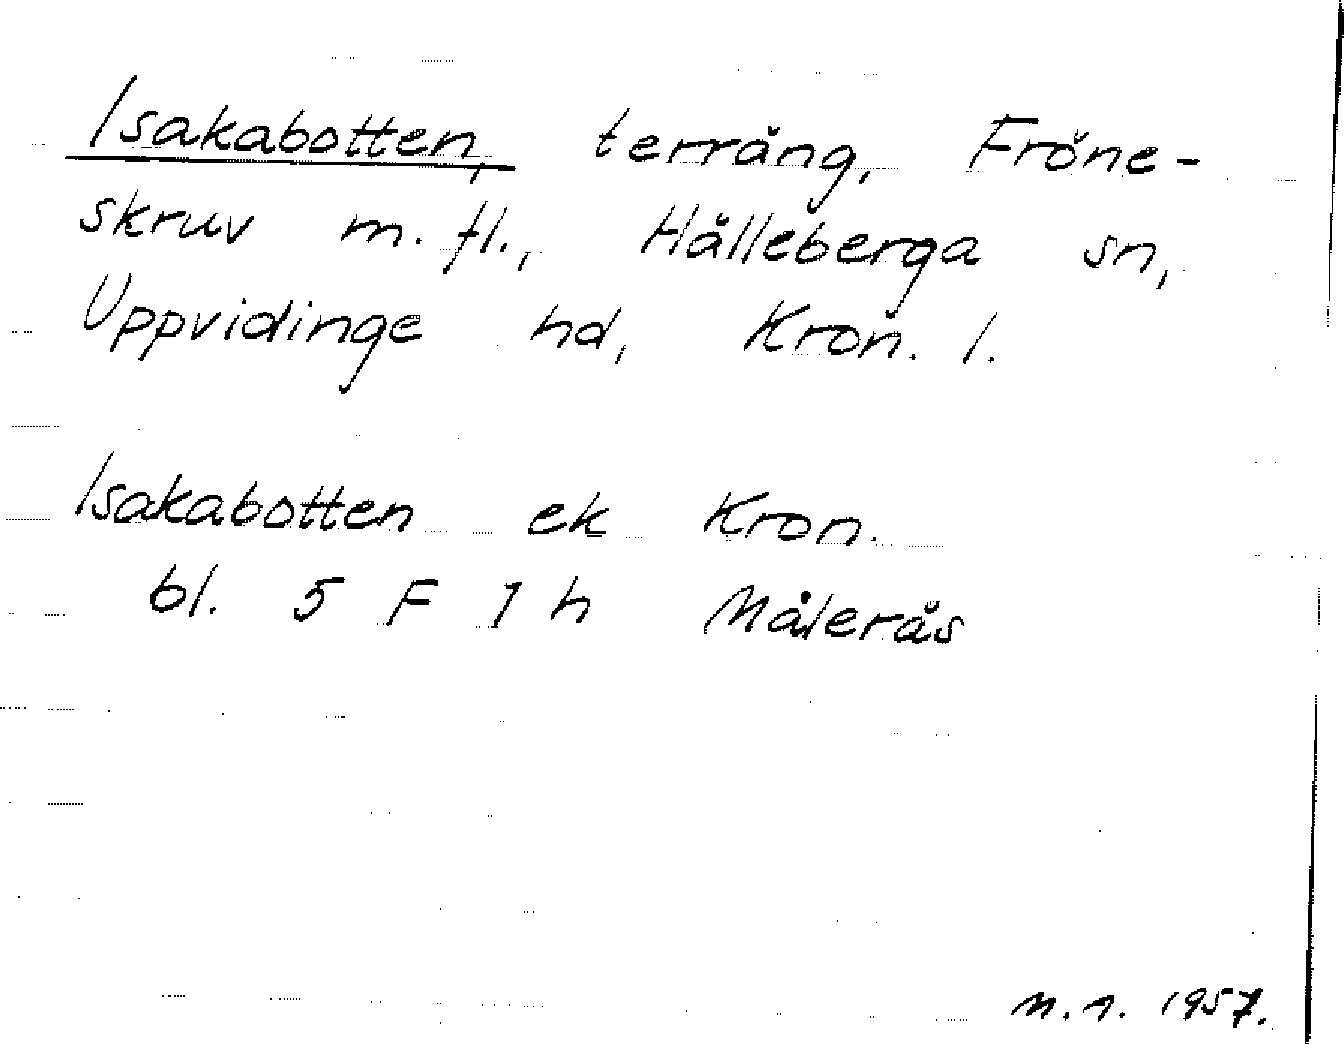 Isakabotten, terräng, Fröne-
skruv m. fl., Hälleberga sn,
Uppvidinge hd, Kron. l.
Isakabotten ek Kron.
bl. 5 F 1 h Målerås
1957.